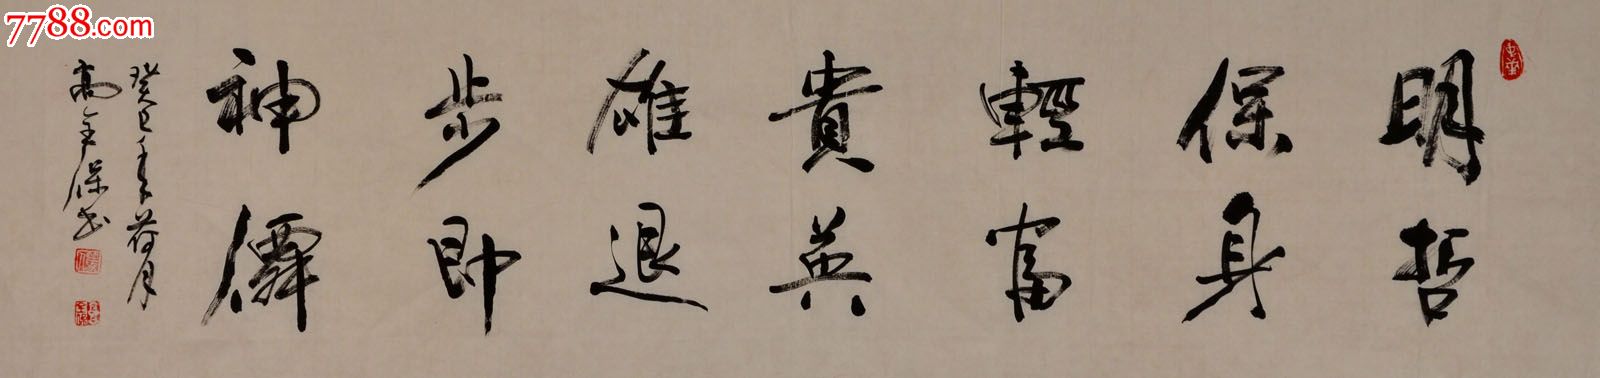 7788.com
明哲
保身
輕富
貴英
雄退
步即
神僊
癸巳年荷月
高金保书